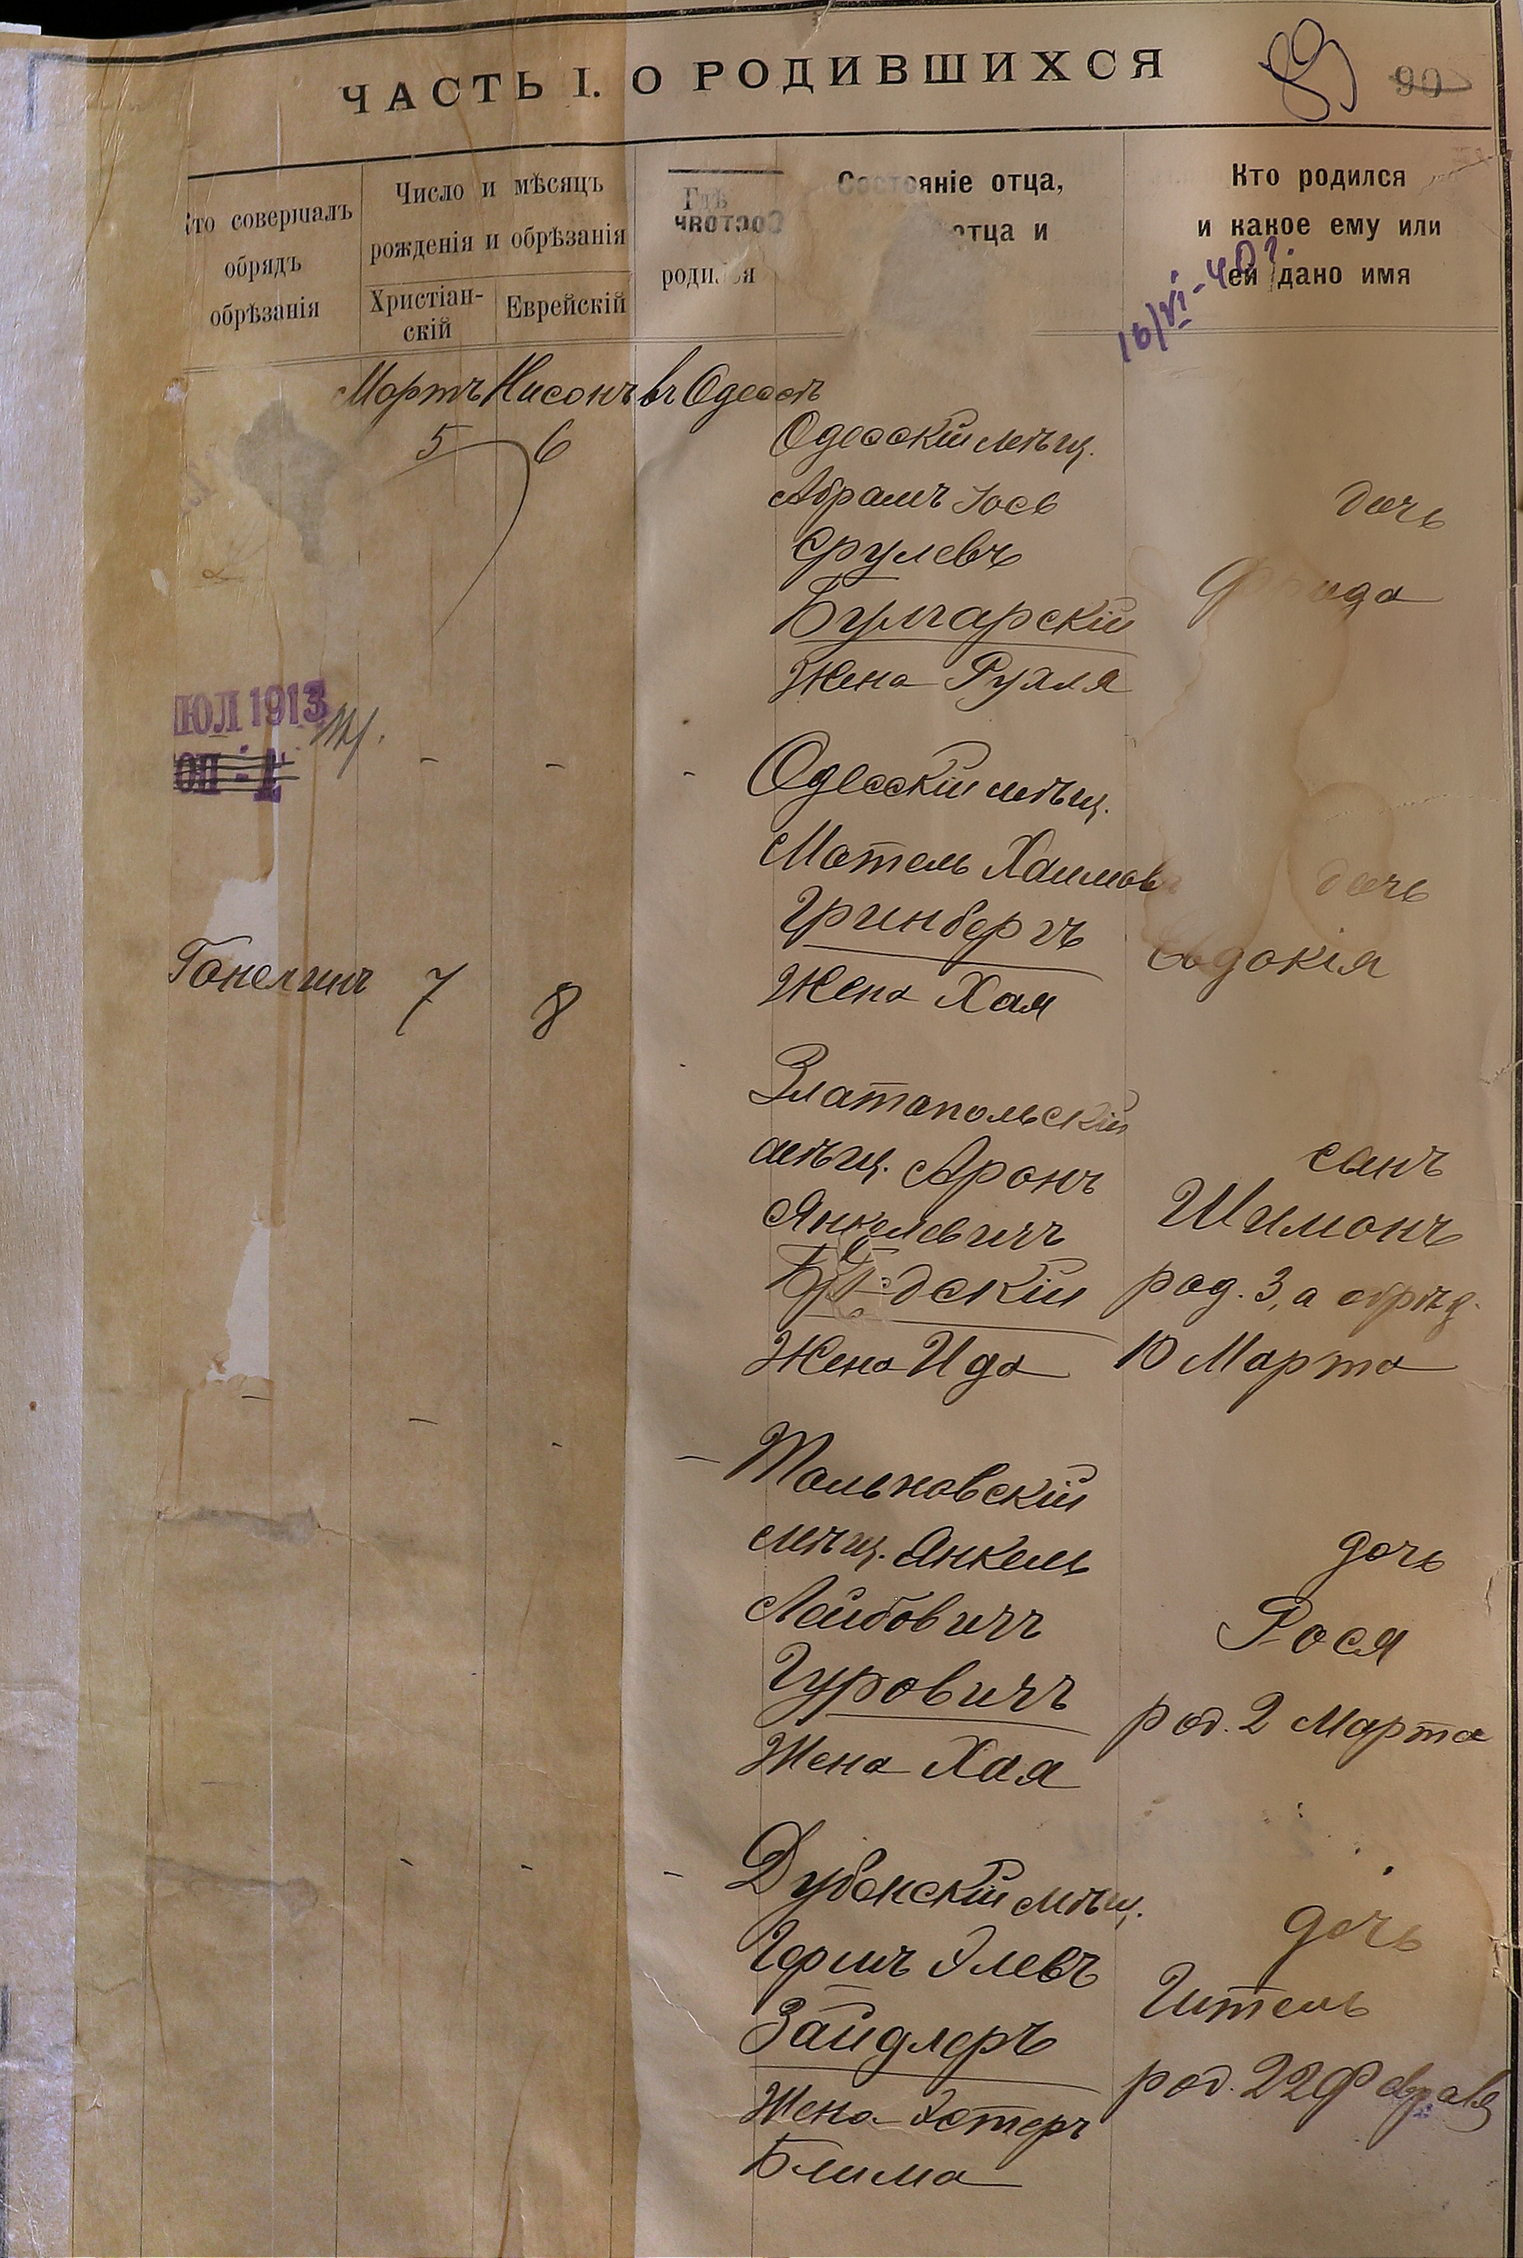 ЧАСТЬ I. О РОДИВШИХСЯ
89
90
то совершалъ
обрядъ
обрѣзанія
Число и мѣсяцъ
рожденія и обрѣзанія
Христіан-
скій
Еврейскій
Гдѣ
родился
Состояніе отца,
отца и
Кто родился
и какое ему или
ей дано имя
16/VI-40г.
Мартъ Нисонъ въ Одессѣ
5 6
Одесскій мѣщ.
Абрамъ Іось
Срулевъ
Булгарскій
Жена Рухля
дочь
Фрида
ІЮЛ 1913
Одесскій мѣщ.
Мотель Хаимовъ
Гринбергъ
Жена Хая
дочь
Евдокія
Ганелинъ 7 8
Златопольскій
мѣщ. Аронъ
Янкелевичъ
Жена Ида
сынъ
Шимонъ
род. 3, а обрѣз.
10 Марта
Тальновскій
мѣщ. Янкель
Лейбовичъ
Гуровичъ
Жена Хая
дочь
Рося
род. 2 Марта
Дубенскій мѣщ.
Гершъ Элевъ
Зайдлеръ
Жена Эстеръ
Блима
дочь
Гитель
род. 22 Февраля